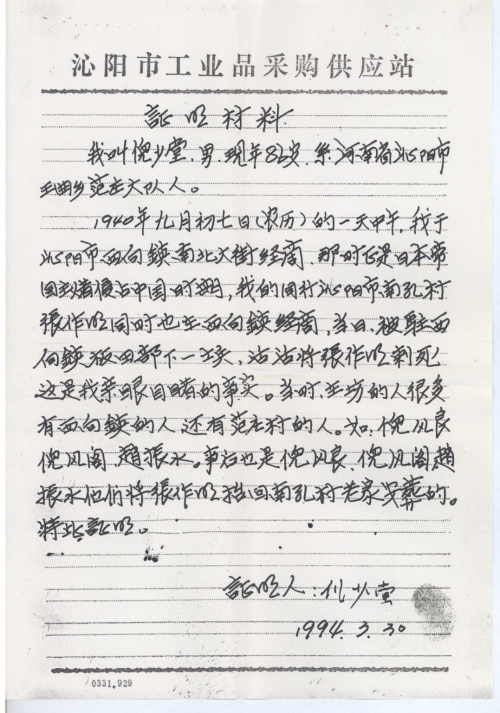 沁阳市工业品采购供应站
証明材料
我叫倪少堂,男,现年82岁,系河南省沁阳市
王曲乡范庄大队人。
1940年九月初七日(农历)的一天中午,我于
沁阳市西向鎮南北大街经商,那时正是日本帝
国主义者侵占中国时期,我的同行沁阳市南孔村
張作明同时也在西向鎮经商,当日,被駐西
向鎮饭田部下一士兵,活活将張作明刺死
这是我亲眼目睹的事实。当时在坊的人很多
有西向鎮的人还有范庄村的人。如:倪风良
倪风阁、趙振水。事后也是倪风良、倪风阁趙
振水他们将張作明抬回南孔村老家安葬的。
特此証明。
証明人:倪少堂
1994.3.30
0331.929